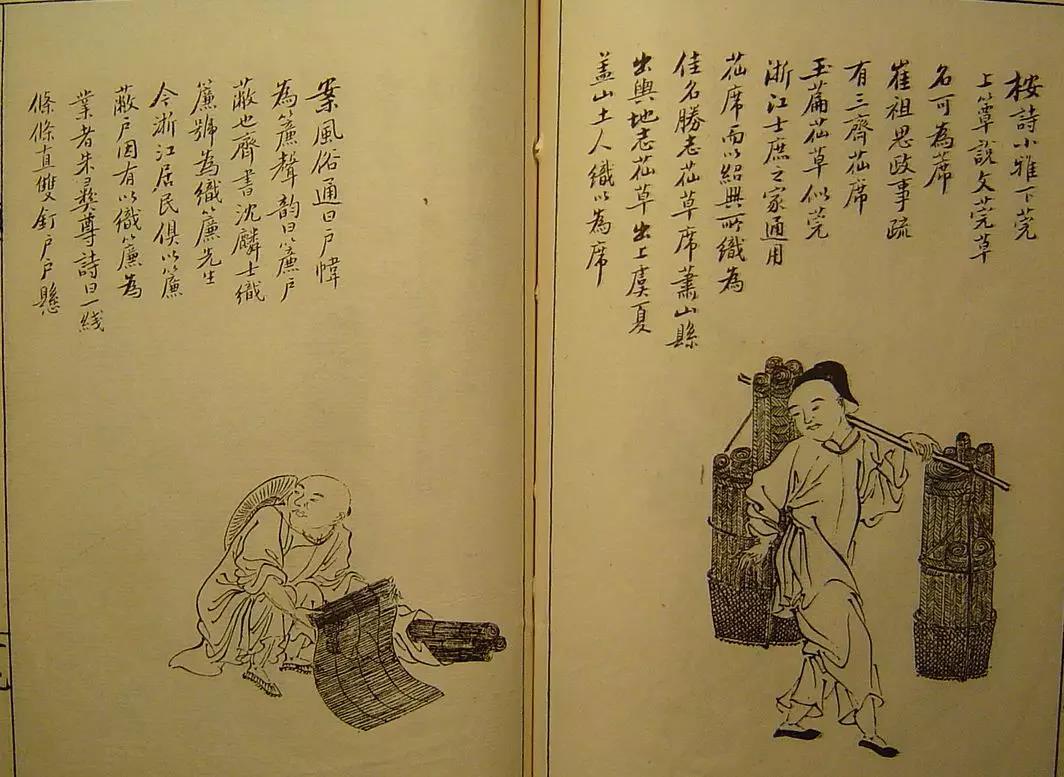 桉詩小雅下莞
上簟說文莞草
名可為蓆
崔祖思政事疏
有三齊菰席
玉篇菰草似莞
浙江士庶之家通用
菰席而以紹興所織為
佳名勝志菰草席蕭山縣
出輿地志菰草出上虞夏
盖山土人織以為席
案風俗通曰戶幃
為簾聲韵曰簾戶
蔽也齊書沈麟士織
簾號為織簾先生
今浙江居民俱以簾
蔽戶因有以織簾為
業者朱彛尊詩曰一綫
條條直雙釘戶戶懸